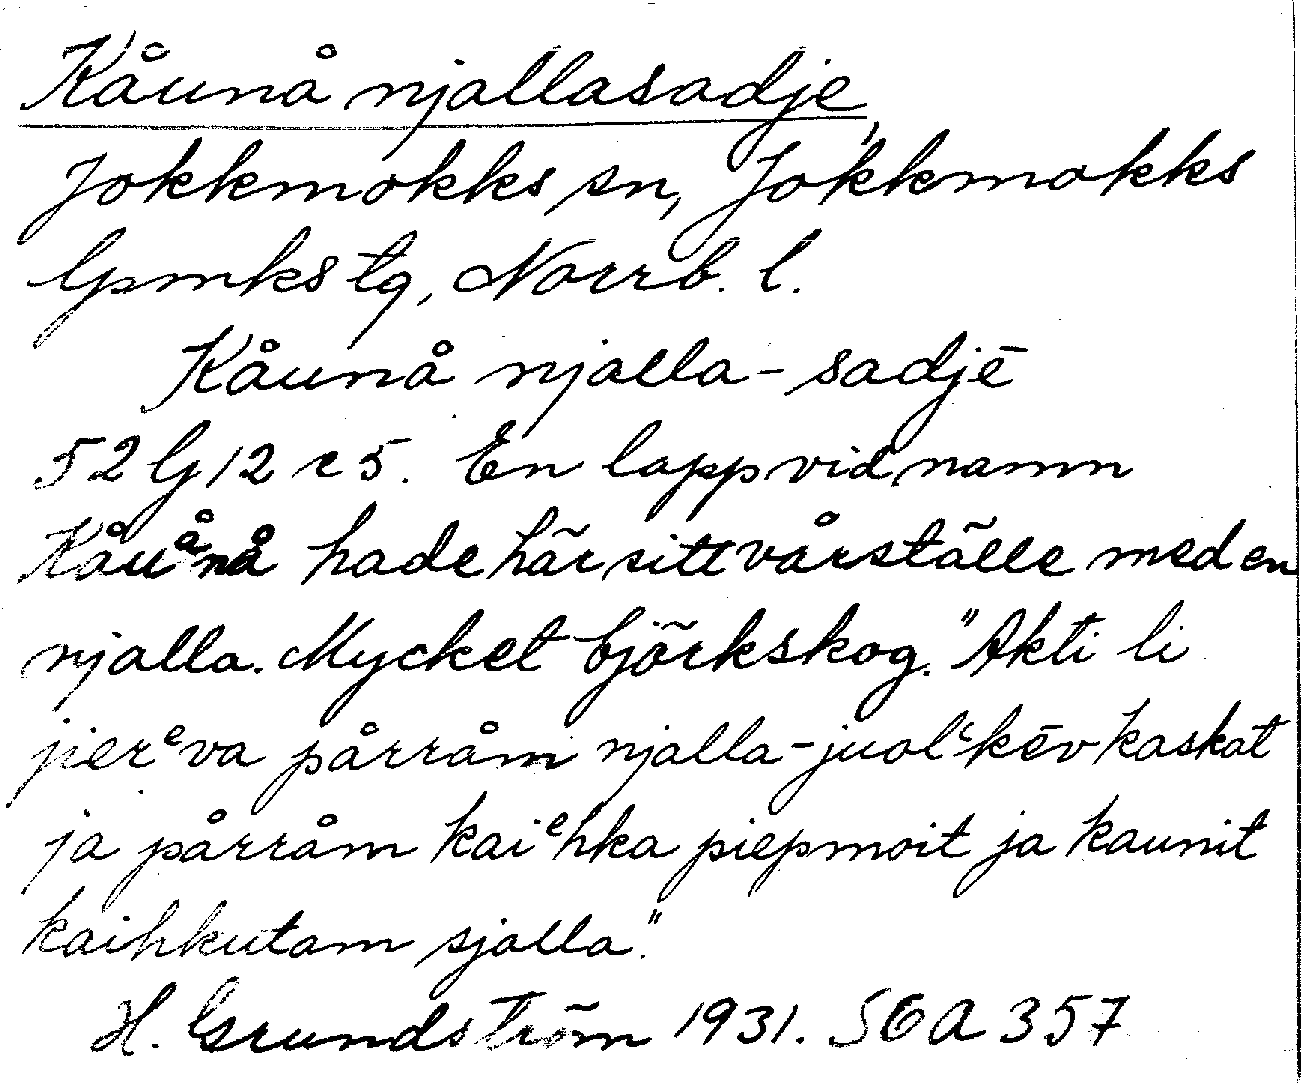 Kåunå njallasadje,
Jokkmokks sn, Jokkmokks
lpmks tg, Norrb. l.
Kåunå njalla-sadjē
52 G 12 c 5. En lapp vid namn
Kåuånå hade här sitt vårställe med en
njalla. Mycket björkskog. "Akti li
jierᵉva pårråm njalla-juolᵋkēv kaskat
ja pårråm kaiᵉhka piepmoit ja kaunit
kaihkutam sjalla."
H. Grundström 1931. SOA 357